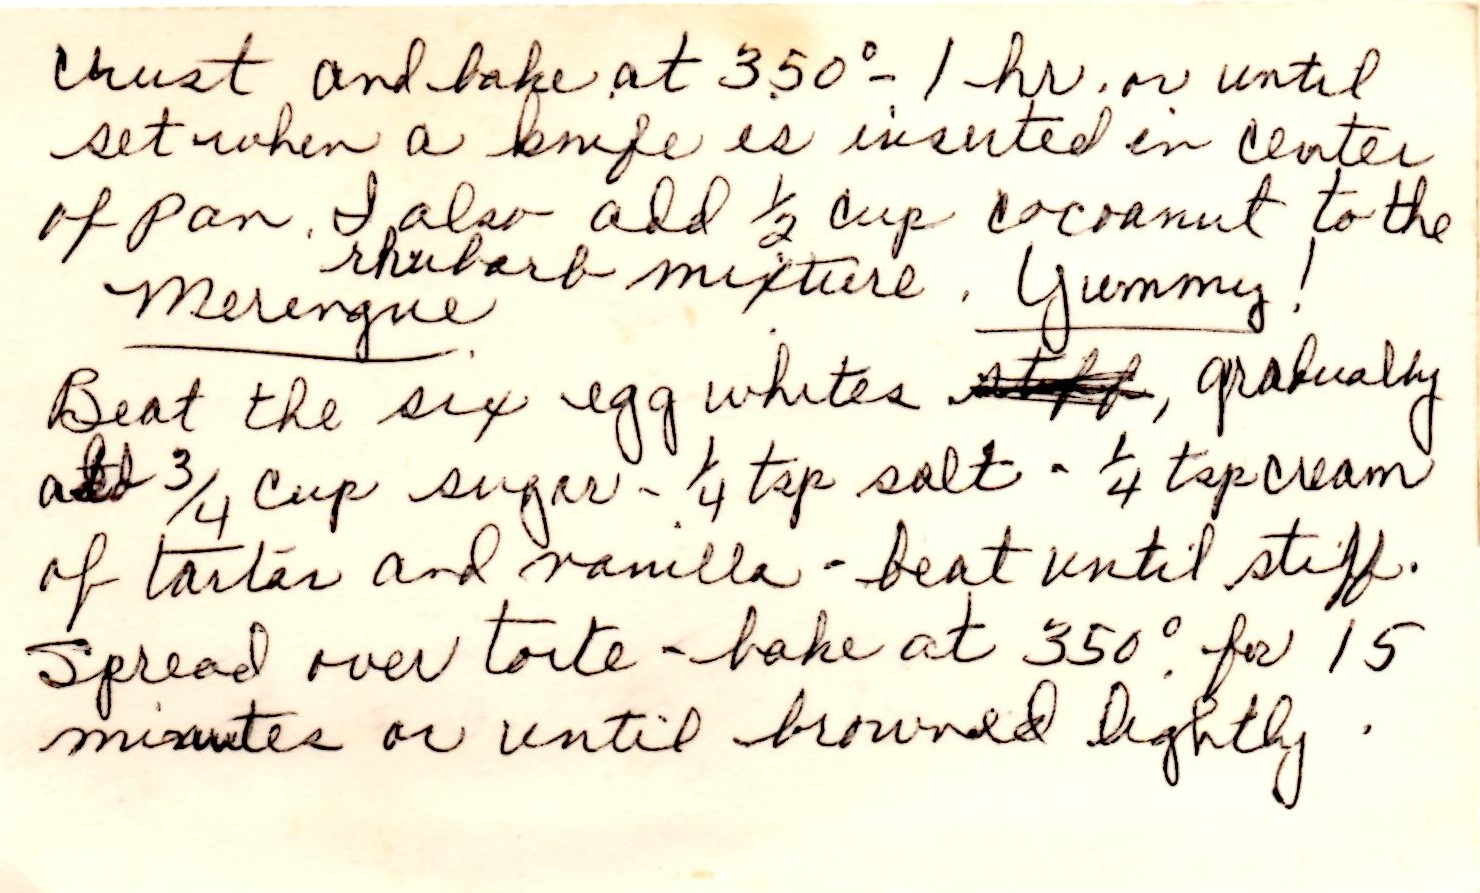 crust and bake at 350° - 1 hr. or until
set when a knife is inserted in center
of pan. I also add 1/2 cup cocoanut to the
rhubarb mixture. Yummy!
Merengue
Beat the six egg whites stiff, gradually
add 3/4 cup sugar - 1/4 tsp salt - 1/4 tsp cream
of tartar and vanilla - beat until stiff.
Spread over torte - bake at 350° for 15
minutes or until browned lightly.